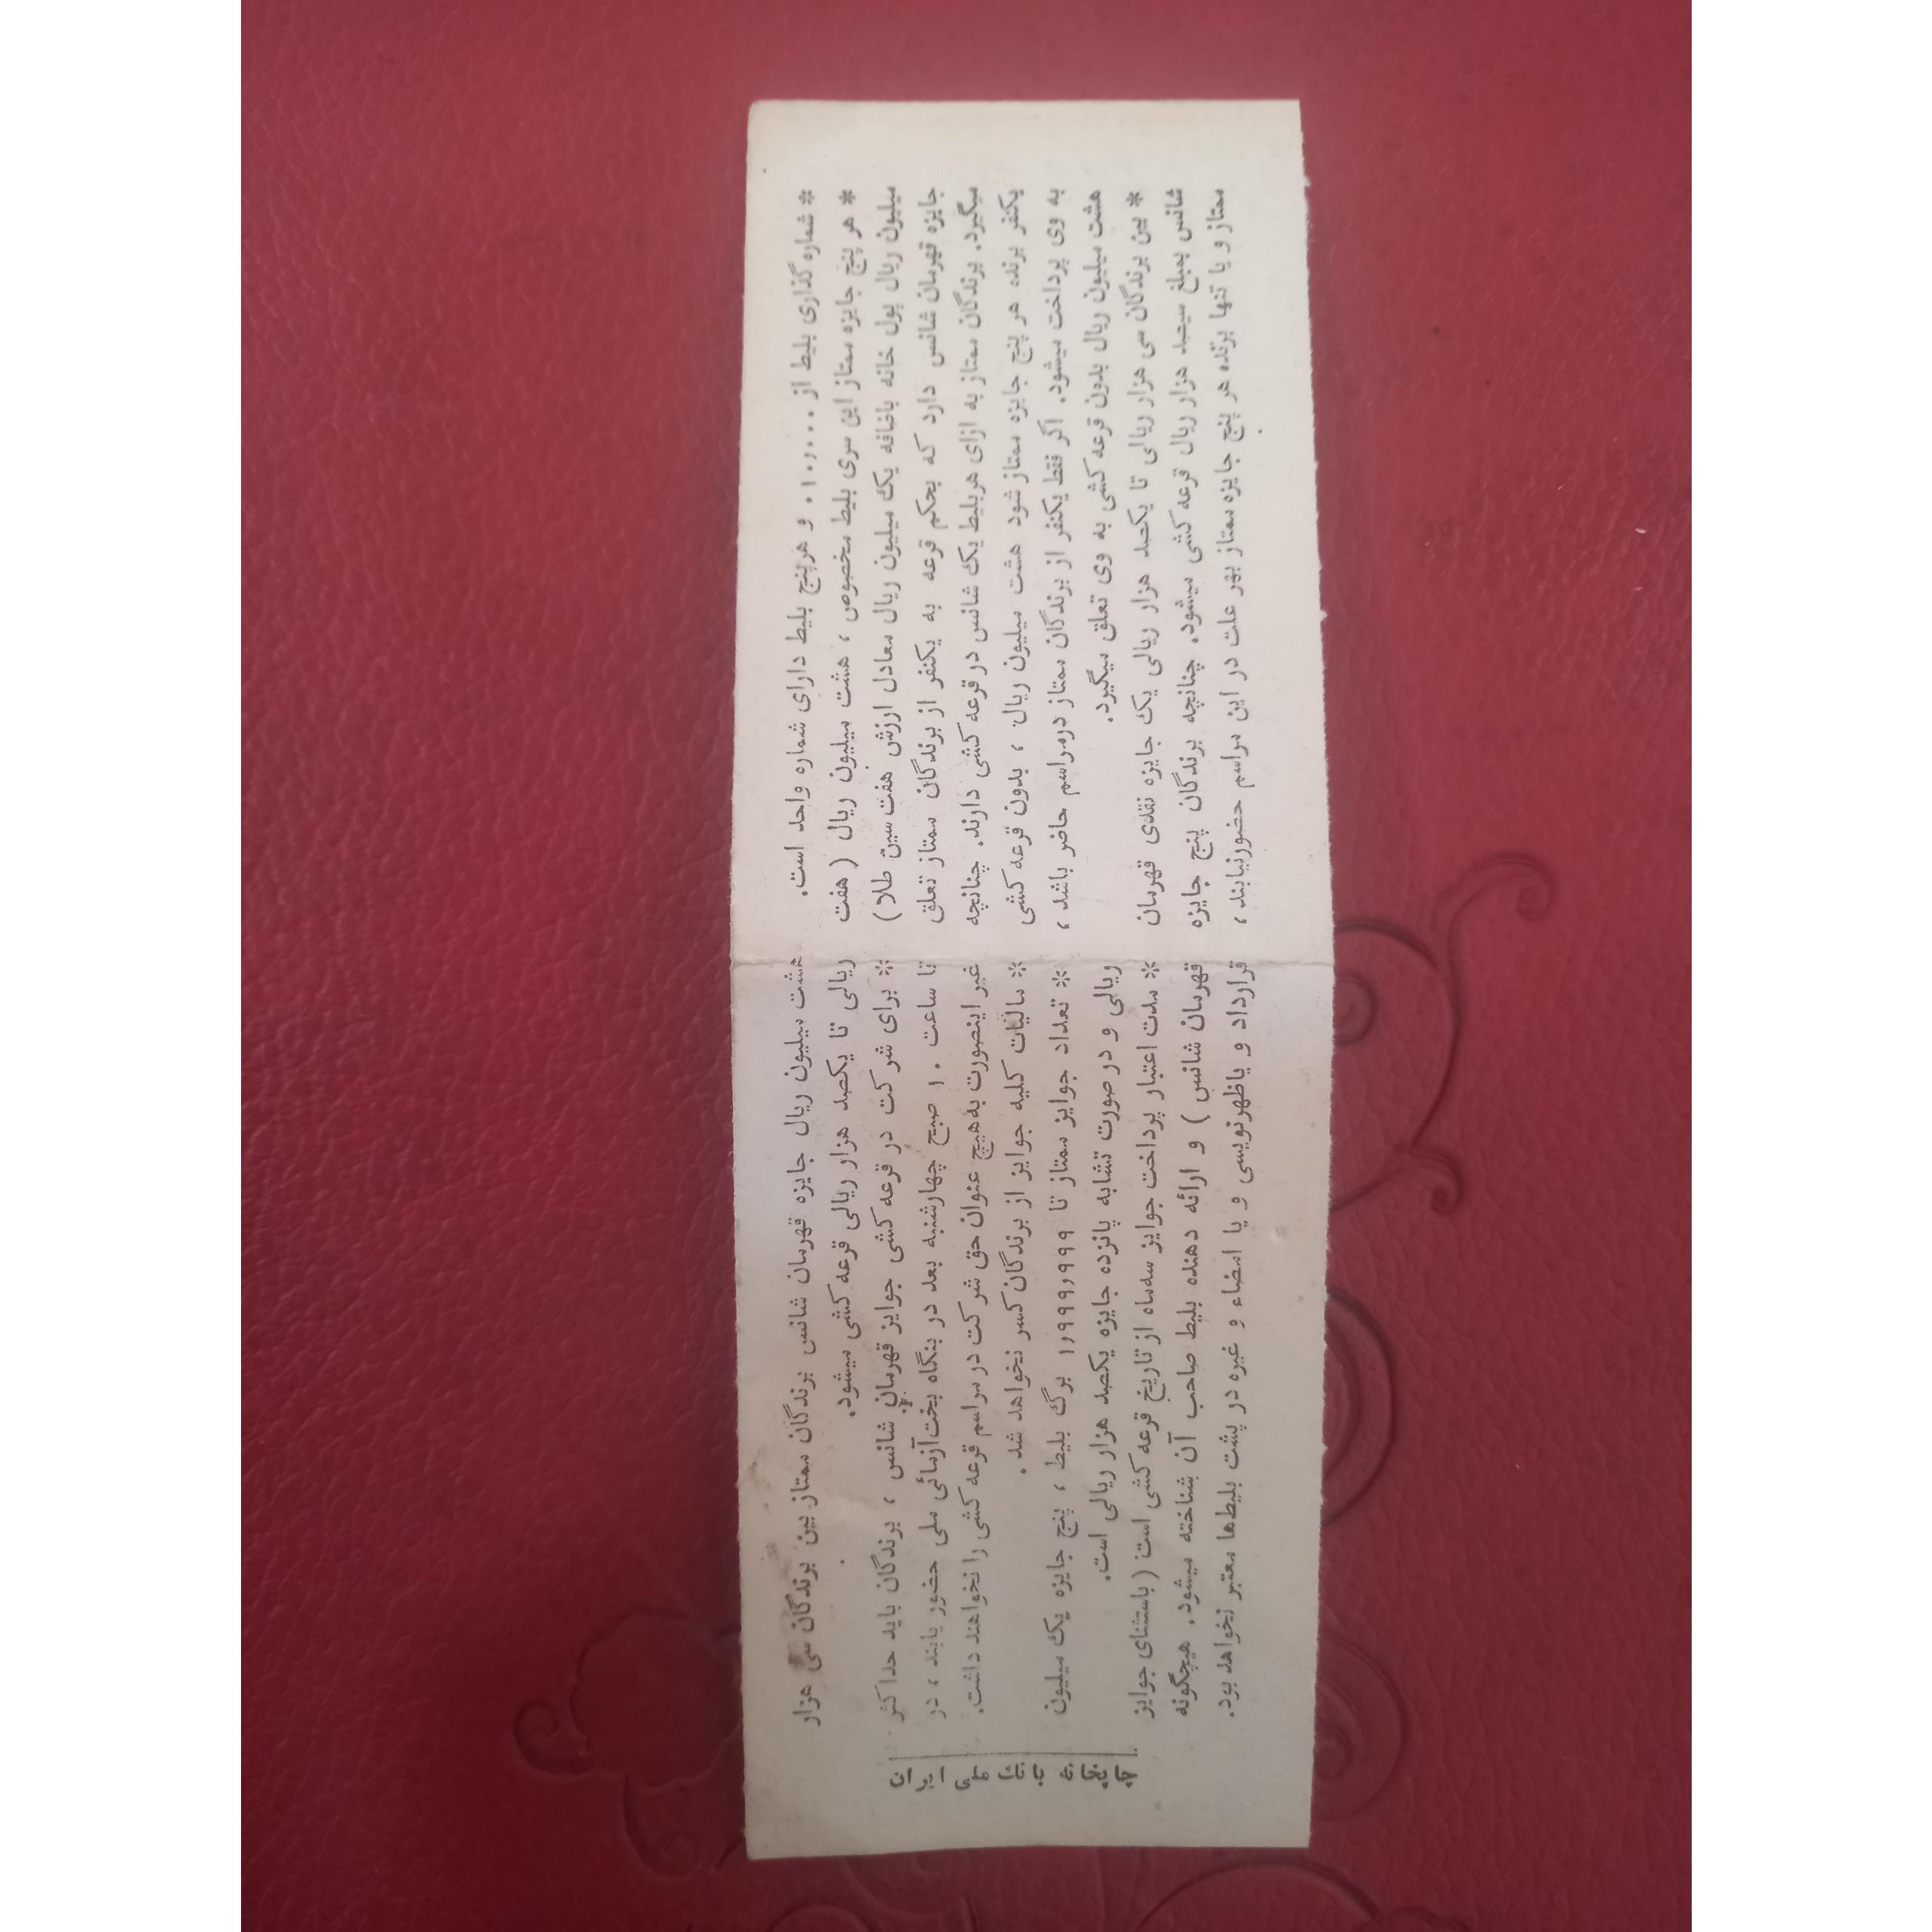 * شماره گذاری بلیط از ۰۱۰٫۰۰۰ و هر پنج بلیط دارای شماره واحد است.
* هر پنج جایزه ممتاز این سری بلیط مخصوص ، هشت میلیون ریال ( هفت
میلیون ریال پول خانه باضافه یک میلیون ریال معادل ارزش هفت سین طلا )
جایزه قهرمان شانس دارد که بحکم قرعه به یکنفر از برندگان ممتاز تعلق
میگیرد. برندگان ممتاز به ازای هر بلیط یک شانس در قرعه کشی دارند. چنانچه
یکنفر برنده هر پنج جایزه ممتاز شود هشت میلیون ریال ، بدون قرعه کشی
به وی پرداخت میشود. اگر فقط یکنفر از برندگان ممتاز درمراسم حاضر باشد ،
هشت میلیون ریال بدون قرعه کشی به وی تعلق میگیرد.
* بین برندگان سی هزار ریالی تا یکصد هزار ریالی یک جایزه نقدی قهرمان
شانس بمبلغ سیصد هزار ریال قرعه کشی میشود. چنانچه برندگان پنج جایزه
ممتاز و یا تنها برنده هر پنج جایزه ممتاز بهر علت در این مراسم حضورنیابند ،
هشت میلیون ریال جایزه قهرمان شانس برندگان ممتاز بین برندگان سی هزار
ریالی تا یکصد هزار ریالی قرعه کشی میشود.
* برای شرکت در قرعه کشی جوایز قهرمان شانس ، برندگان باید حداکثر
تا ساعت ۱۰ صبح چهارشنبه بعد در بنگاه بخت‌آزمائی ملی حضور یابند ، در
غیر اینصورت به‌هیچ عنوان حق شرکت در مراسم قرعه کشی را نخواهند داشت.
* مالیات کلیه جوایز از برندگان کسر نخواهد شد .
* تعداد جوایز ممتاز تا ۱٫۹۹۹٫۹۹۹ برگ بلیط ، پنج جایزه یک میلیون
ریالی و در صورت تشابه پانزده جایزه یکصد هزار ریالی است.
* مدت اعتبار پرداخت جوایز سه‌ماه از تاریخ قرعه کشی است ( باستثنای جوایز
قهرمان شانس ) و ارائه دهنده بلیط صاحب آن شناخته میشود. هیچگونه
قرارداد و یاظهرنویسی و یا امضاء و غیره در پشت بلیط‌ها معتبر نخواهد بود.
چاپخانه بانک ملی ایران